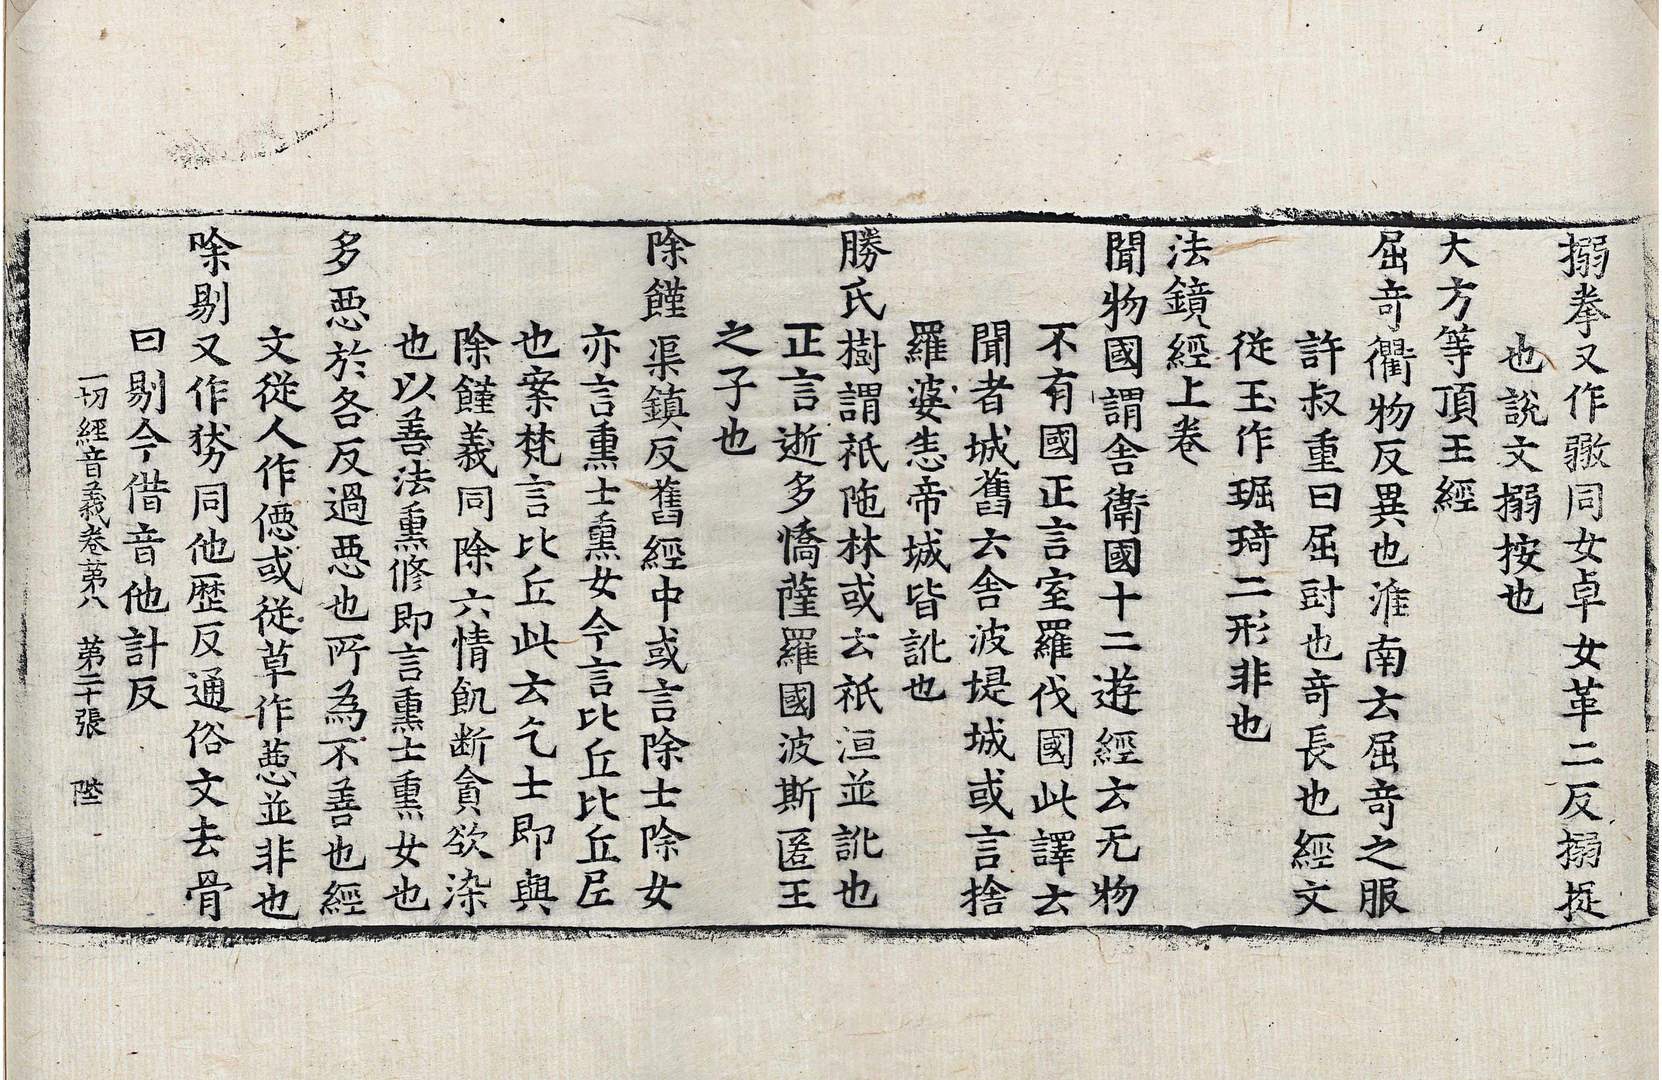 搦拳又作𢷾同女卓女革二反搦捉
也說文搦按也
大方等頂王經
屈奇衢物反異也淮南云屈奇之服
許叔重曰屈討也奇長也經文
從玉作琚琦二形非也
法鏡經上卷
聞物國謂舍衛國十二遊經云无物
不有國正言室羅伐國此譯云
聞者城舊云舍波堤城或言捨
羅婆恚帝城皆訛也
勝氏樹謂祇陁林或云祇洹並訛也
正言逝多憍薩羅國波斯匿王
之子也
除饉渠鎮反舊經中或言除士除女
亦言熏士熏女今言比丘比丘尼
也案梵言比丘此云乞士即與
除饉義同除六情飢断貪欲染
也以善法熏修即言熏士熏女也
多惡於各反過惡也所為不善也經
文從人作僫或從草作蕙並非也
唋剔又作㔸同他歷反通俗文去骨
曰剔今借音他計反
一切經音義卷苐八 苐二十張 陛